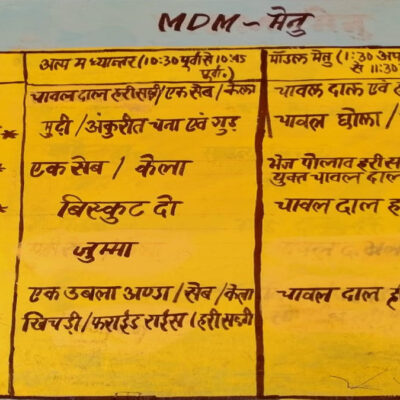 MDM - मेनु
अल्प मध्यान्तर (10:30 पूर्वा से 10:45
पूर्वा.)
मॉडल मेनु (1:30 अप
से 11:30
चावल दाल हरी सब्जी/एक सेब/केला
चावल दाल एवं ह
मुढ़ी / अंकुरीत चना एवं गुड़
चावल छोला /
एक सेब / केला
भेज पोलाव हरी स
युक्त चावल दाल
बिस्कुट दो
चावल दाल ह
जुम्मा
एक उबला अण्डा/सेब/केला
चावल दाल ह
खिचड़ी/फराईड राईस (हरी सब्जी